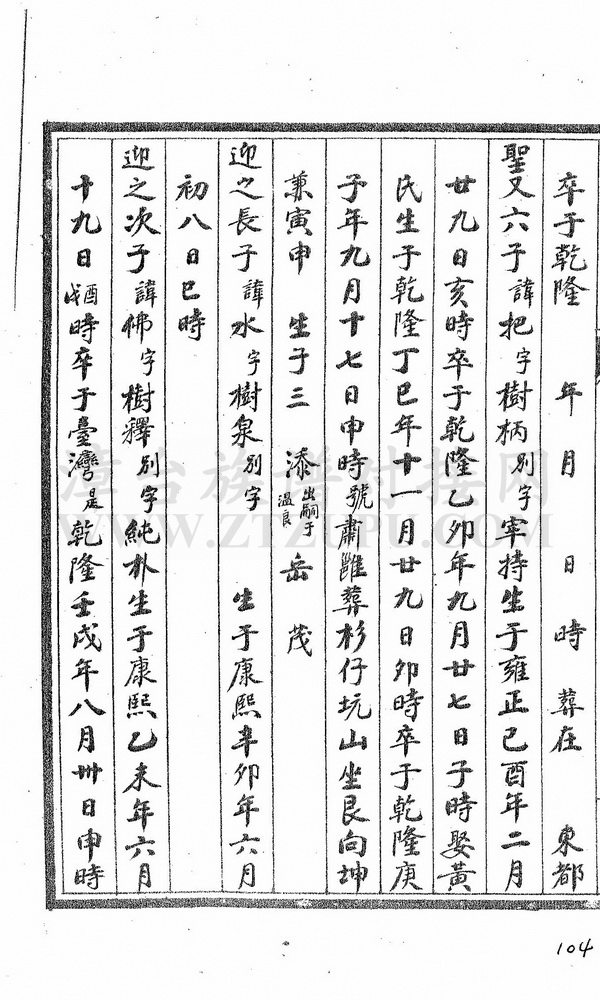 卒于乾隆 年 月 日 時 葬在 東都
聖又六子諱把字樹柄別字宰持生于雍正己酉年二月
廿九日亥時卒于乾隆乙卯年九月廿七日子時娶黃
氏生于乾隆丁巳年十一月廿九日卯時卒于乾隆庚
子年九月十七日申時號肅雝葬杉仔坑山坐艮向坤
兼寅申 生子三 添出嗣于溫良 岳 茂
迎之長子諱水字樹泉別字 生于康熙辛卯年六月
初八日巳時
迎之次子諱佛字樹釋別字純朴生于康熙乙未年六月
十九日酉戌時卒于臺灣是乾隆壬戌年八月卅日申時
漳台族譜對接网
WWW.ZTZUPU.COM
104